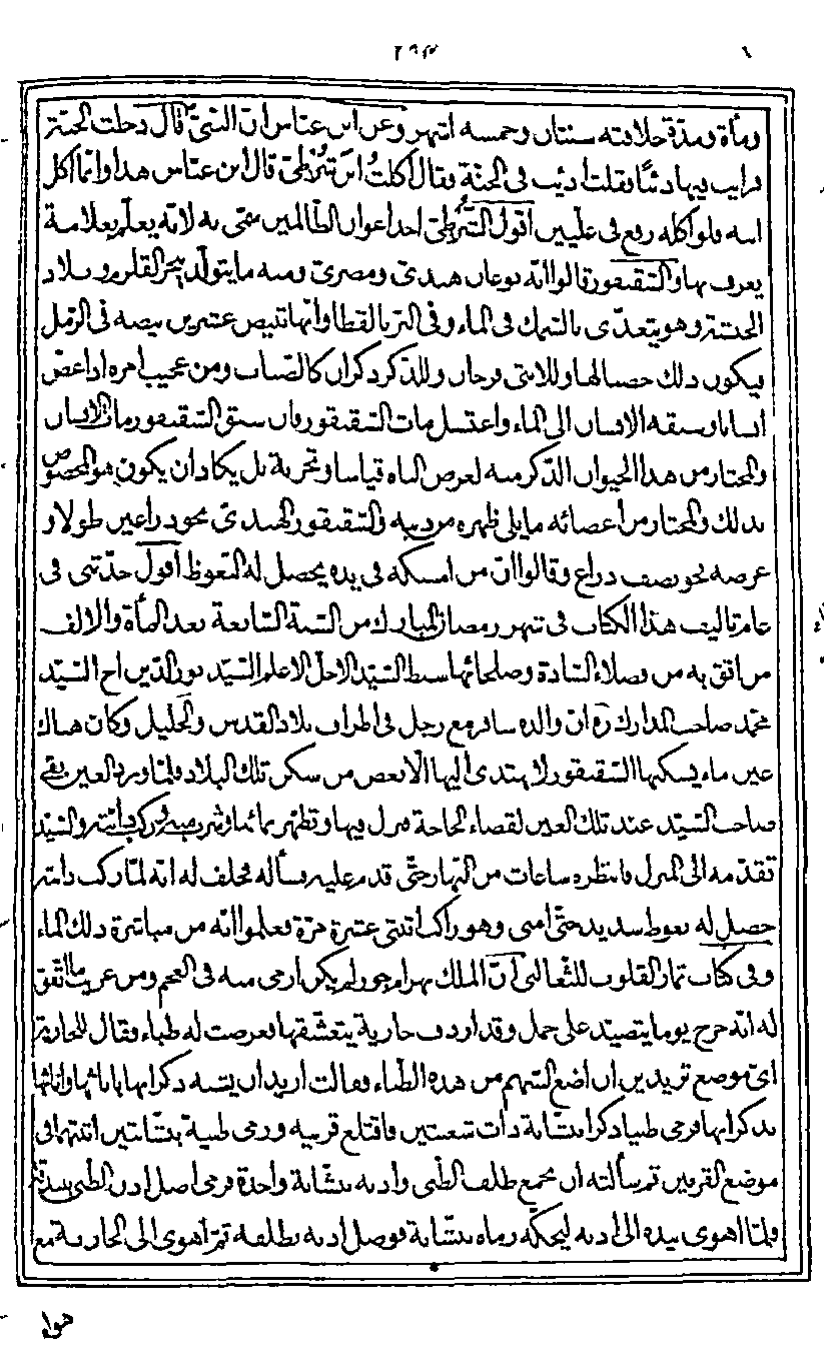 ٢٩٣
ومأة ومدة خلافته سنتان وخمسة اشهر وعن ابن عباس ان النبي قال دخلت الجنة
فرايت فيها ذئبا فقلت اذئب في الجنة فقال اكلت ابن شرطي قال ابن عباس هذا وانما اكل
ابنه فلو اكله رفع في عليين اقول الشرطي احد اعوان الظالمين سمي به لانه يعلم بعلامة
يعرف بها والسقنقور قالوا انه نوعان هندي ومصري ومنه ما يتولد ببحر القلزم وببلاد
الحبشة وهو يتغذى بالسمك في الماء وفي البر بالقطا وانثاه تبيض عشرين بيضة في الرمل
فيكون ذلك حضنا لها وللانثى فرجان وللذكر ذكران كالضباب ومن عجيب امره اذا عض
انسانا وسبقه الانسان الى الماء واغتسل مات السقنقور وان سبق السقنقور مات الانسان
والمختار من هذا الحيوان الذكر منه لغرض الباه قياسا وتجربة بل يكاد ان يكون هو المخصوص
بذلك والمختار من اعضائه ما يلي ظهره من ذنبه والسقنقور الهندي نحو ذراعين طولا و
عرضه نحو نصف ذراع وقالوا ان من امسكه في يده يحصل له النعوظ اقول حدثني في
عام تاليف هذا الكتاب في شهر رمضان المبارك من السنة التاسعة بعد المأة والالف
من اثق به من فضلاء السادة وصلحائها سبط السيد الاجل الاعلم السيد نور الدين اخ السيد
محمد صاحب المدارك ره ان والده سافر مع رجل في اطراف بلاد القدس والجليل وكان هناك
عين ماء يسكنها السقنقور لا يهتدى اليها الا بعض من سكن تلك البلاد فلما ورد العين بقي
صاحب السيد عند تلك العين لقضاء الحاجة فنزل فيها وتطهر بمائها وشرب منه وركب دابته والسيد
تقدمه الى المنزل فانتظره ساعات من النهار حتى قدم عليه فسأله فحلف له انه لما ركب دابته
حصل له نعوظ شديد حتى امنى وهو راكب اثنتي عشرة مرة فعلموا انه من مباشرة ذلك الماء
وفي كتاب ثمار القلوب للثعالبي ان الملك بهرام جور لم يكن ارمى منه في العجم ومن غريب ما اتفق
له انه خرج يوما يتصيد على جمل وقد اردف جارية يتعشقها فعرضت له ظباء فقال للجارية
اي موضع تريدين ان اضع السهم من هذه الظباء فقالت اريد ان يشبه ذكرانها باناثها واناثها
بذكرانها فرمى ظبيا ذكرا بنشابة ذات شعبتين فاقتلع قرنيه ورمى ظبية بنشابتين اثبتهما في
موضع القرنين ثم سألته ان يجمع ظلف الظبي واذنه بنشابة واحدة فرمى اصل اذن الظبي ببندقة
فلما اهوى بيده الى اذنه ليحكه رماه بنشابة فوصل اذنه بظلفه ثم اهوى الى الجارية مع
هواه